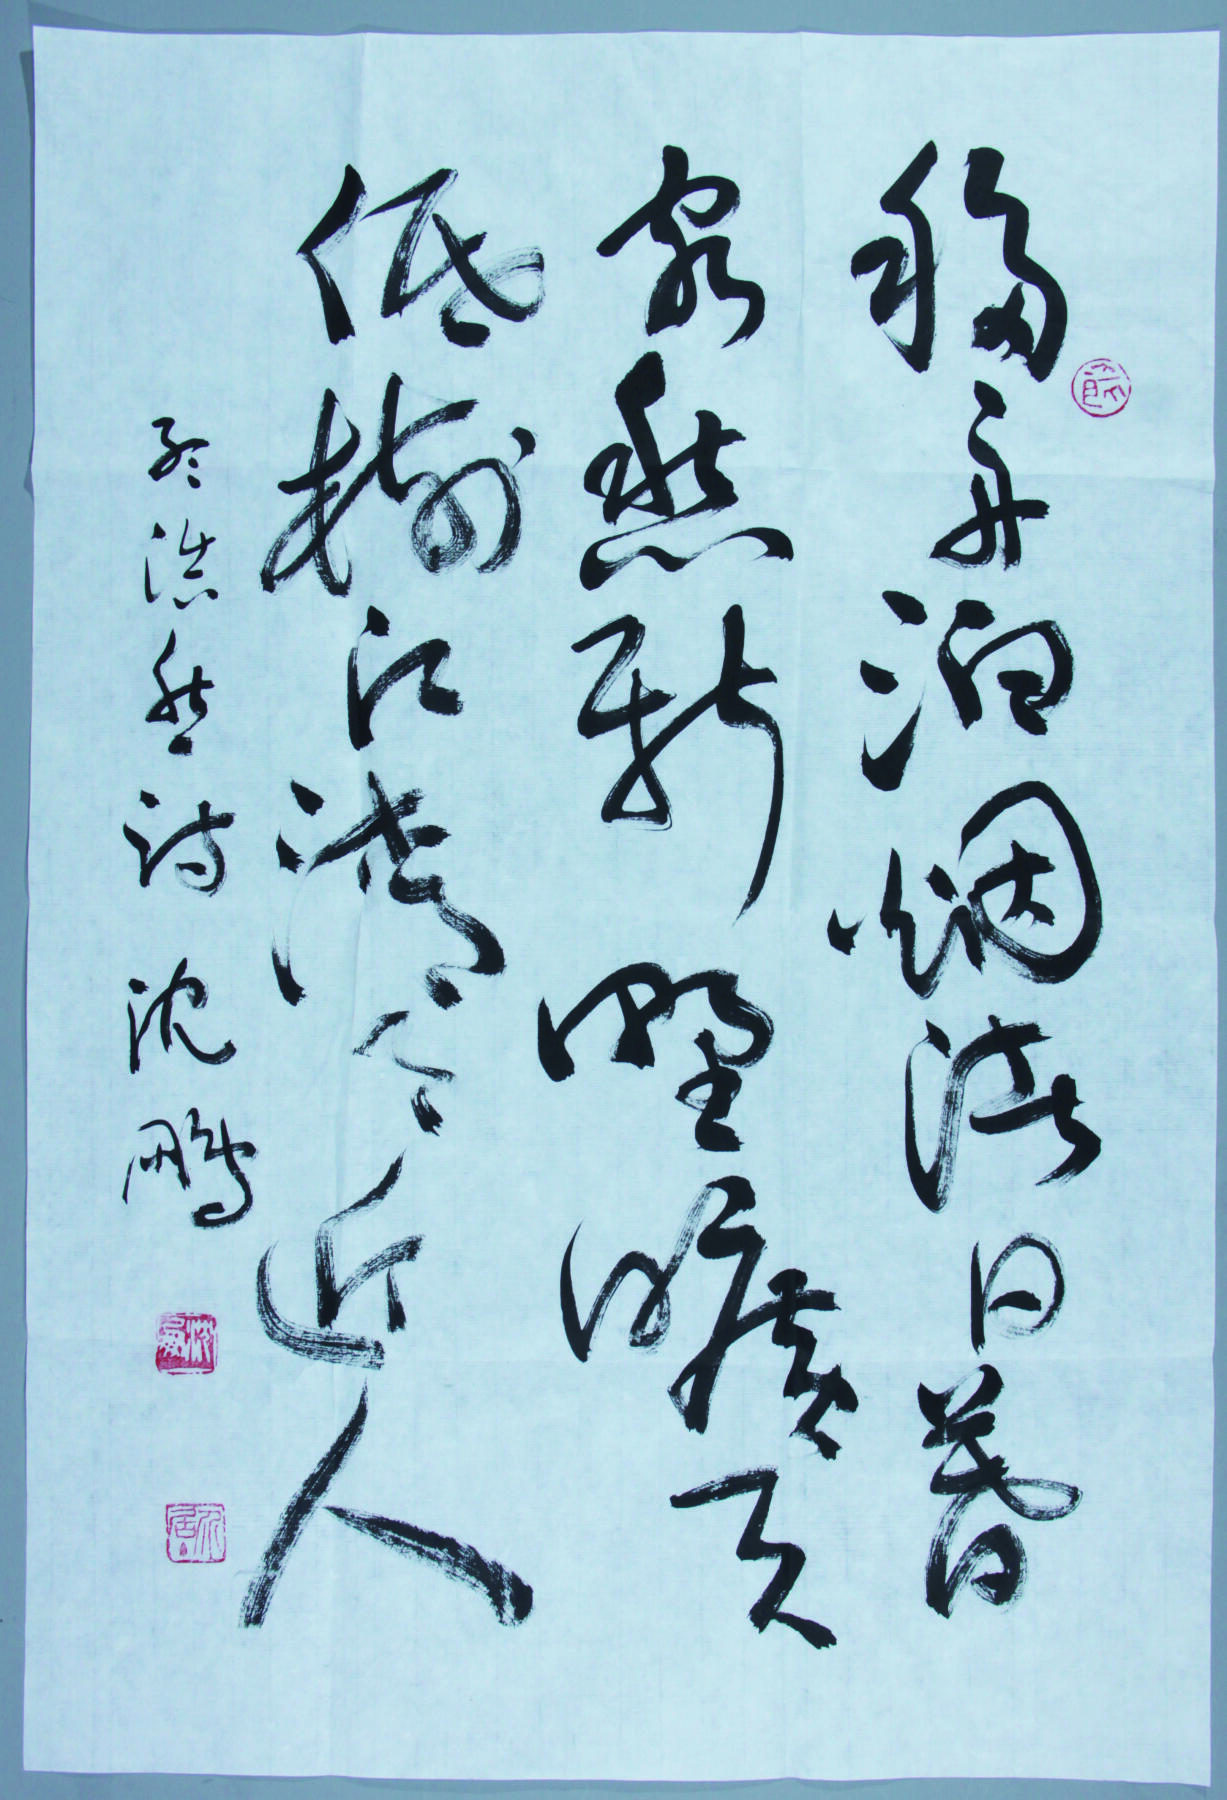 移舟泊烟渚日暮
客愁新野曠天
低樹江清月近人
孟浩然詩 沈鵬